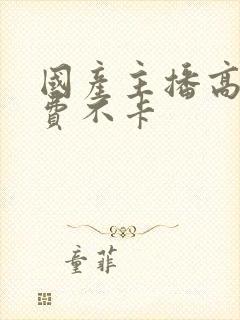 國產主播高
費不卡
童菲